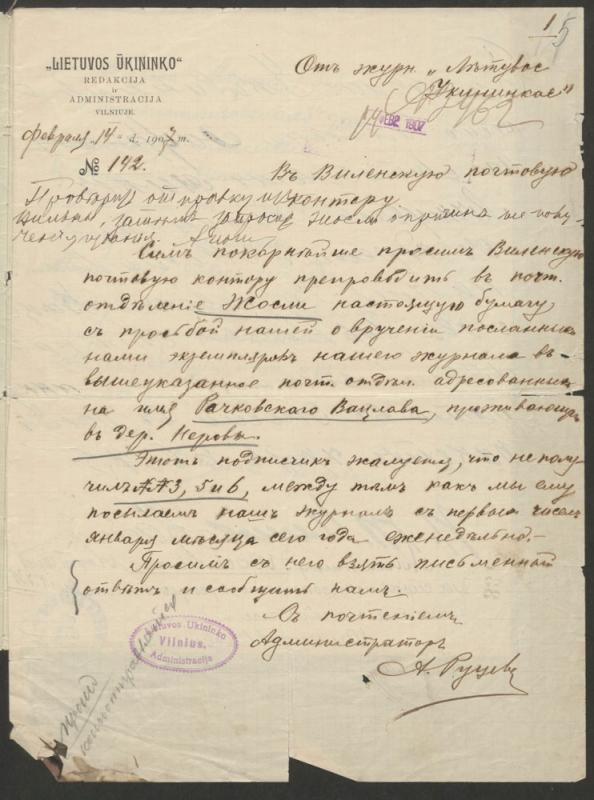 1
5
„LIETUVOS ŪKININKO“
REDAKCIJA
ir
ADMINISTRACIJA
VILNIUJE.
Февраля „14“ d. 1907 m.
№ 142.
Отъ журн. „Лѣтувос
Укининкас“
ФЕВ 1907
Въ Виленскую почтовую
контору.
Симъ покорнѣйше просимъ Виленскую
почтовую контору препроводить въ почт.
отдѣленіе Жосли настоящую бумагу
съ просьбой нашей о врученіи посланныхъ
нами экземпляровъ нашего журнала въ
вышеуказанное почт. отдѣл. адресованныхъ
на имя Рачковскаго Вацлава, проживающ.
въ дер. Керовы.
Этотъ подписчикъ жалуется, что не полу-
чилъ №№3, 5 и 6, между тѣмъ какъ мы ему
посылаемъ нашъ журналъ съ первыхъ чиселъ
января мѣсяца сего года еженедѣльно.–
Просимъ съ него взять письменный
отвѣтъ и сообщить намъ.
Съ почтеніемъ
Администраторъ
Lietuvos Ukininko
Vilnius.
Administracija